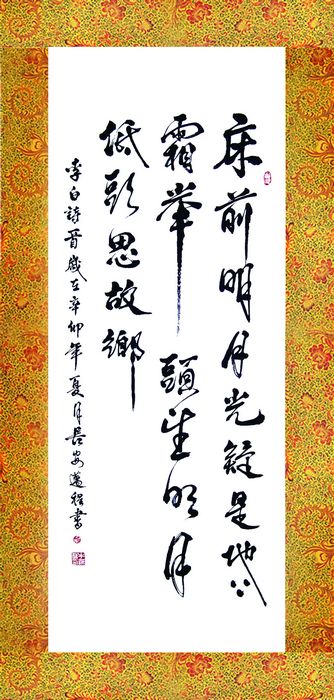 床前明月光疑是地上
霜举頭望明月
低頭思故鄉
李白詩首歲在辛卯年夏月長安程書